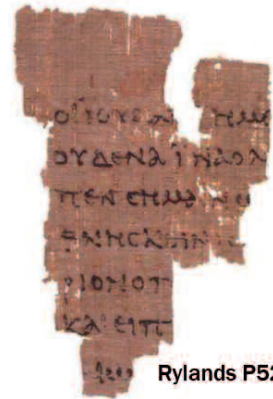 ΟΙ ΙΟΥΔΑΙ ΗΜΕ
ΟΥΔΕΝΑ ΪΝΑ Ο Λ
ΠΕΝ CΗΜΑΙΝΩ
ΘΝΗCΚΕΙΝ ΙC
ΡΙΟΝ Ο Π
ΚΑΙ ΕΙΠ
Rylands P52